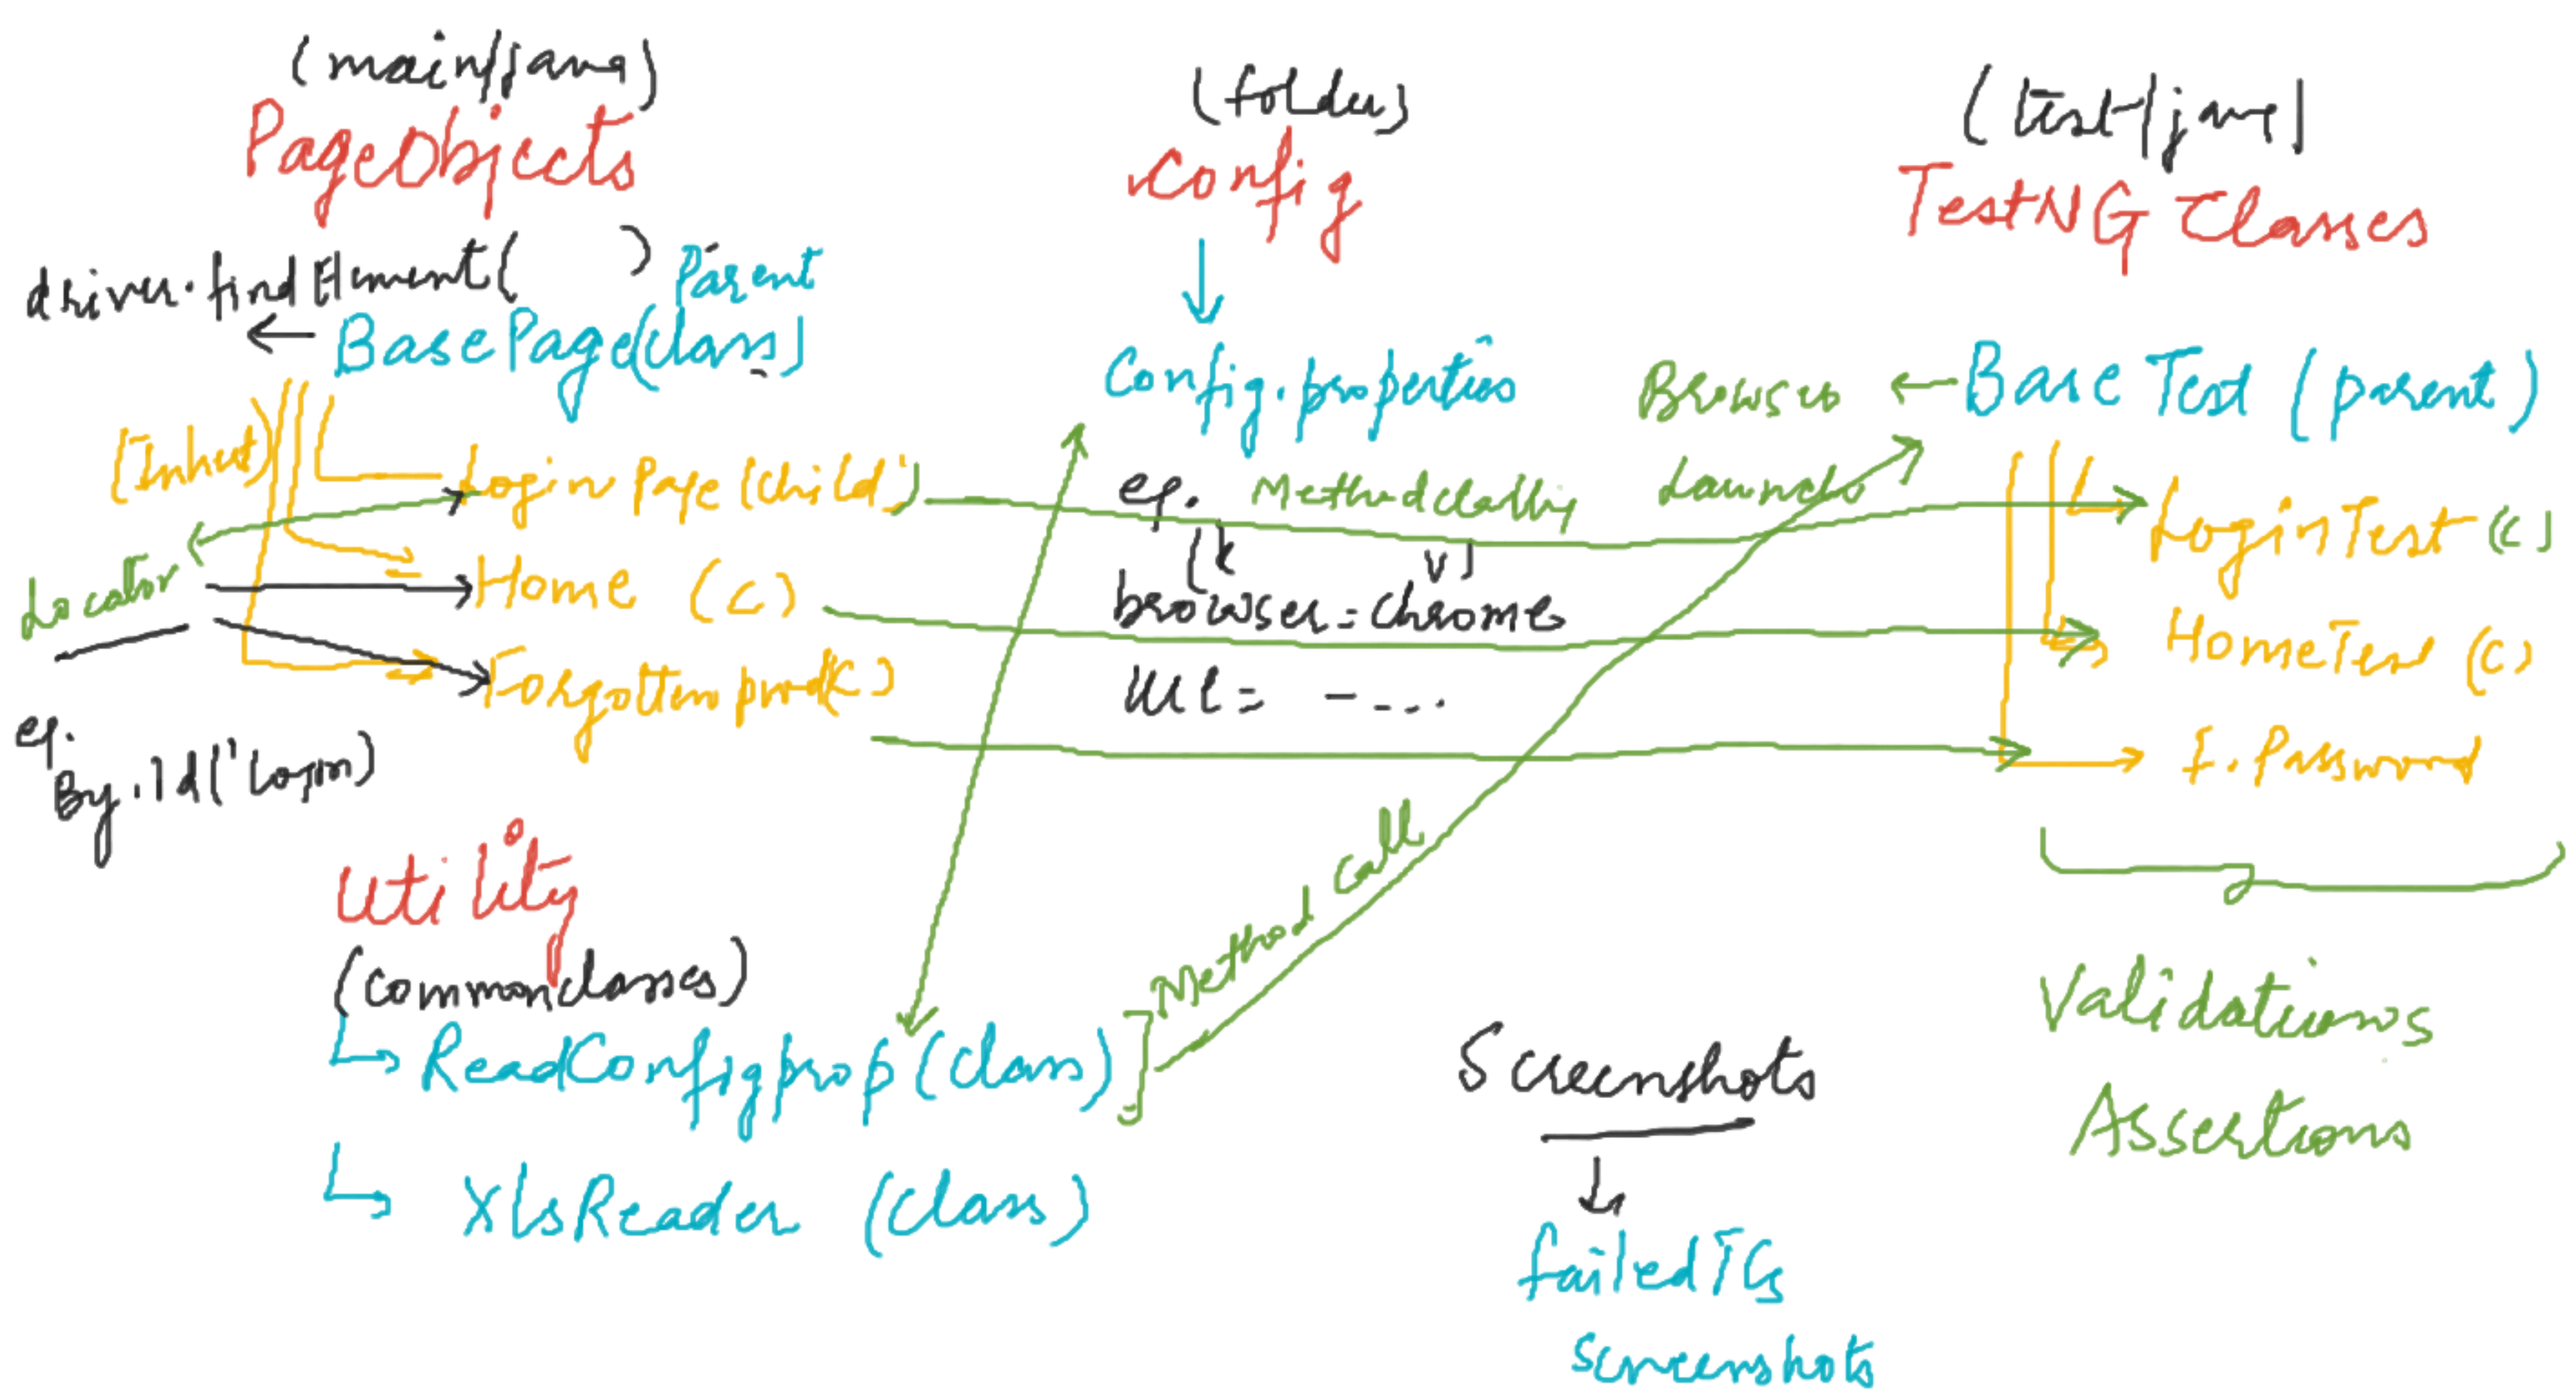 (main/java)
PageObjects
driver.findElement( )
Parent
← BasePage(class)
(Inherit)
Login Page (child)
Locator
Home (c)
Forgotten pwd(c)
eg.
By.id('login)
Utility
(common classes)
ReadConfigprop (class)
XlsReader (class)
(folder)
Config
Config.properties
eg.
Method calling
(k v)
browser = chrome
url = - ---
Method call
Screenshots
failedTCs
screenshots
(test/java)
TestNG Classes
Browser ← Base Test (parent)
Launch
LoginTest (c)
HomeTest (c)
f. Password
Validations
Assertions